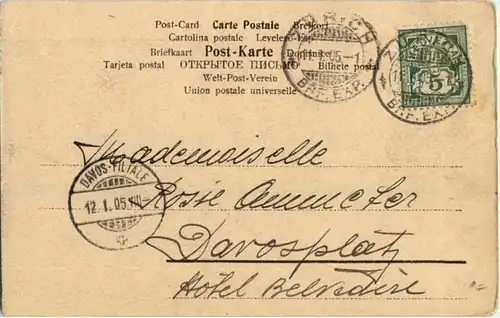 Post-Card Carte Postale Brefkort
Cartolina postale Levelező-Lap
Briefkaart Post-Karte Dopisnice
Tarjeta postal ОТКРЫТОЕ ПИСЬМО Bilhete postal
Welt-Post-Verein
Union postale universelle
ZÜRICH
11.1.05.-1
BRF. EXP.
HELVETIA
5
BRF. EXP.
DAVOS-FILIALE
12.1.05.VII
Mademoiselle
Davosplatz
Hôtel Belvédère